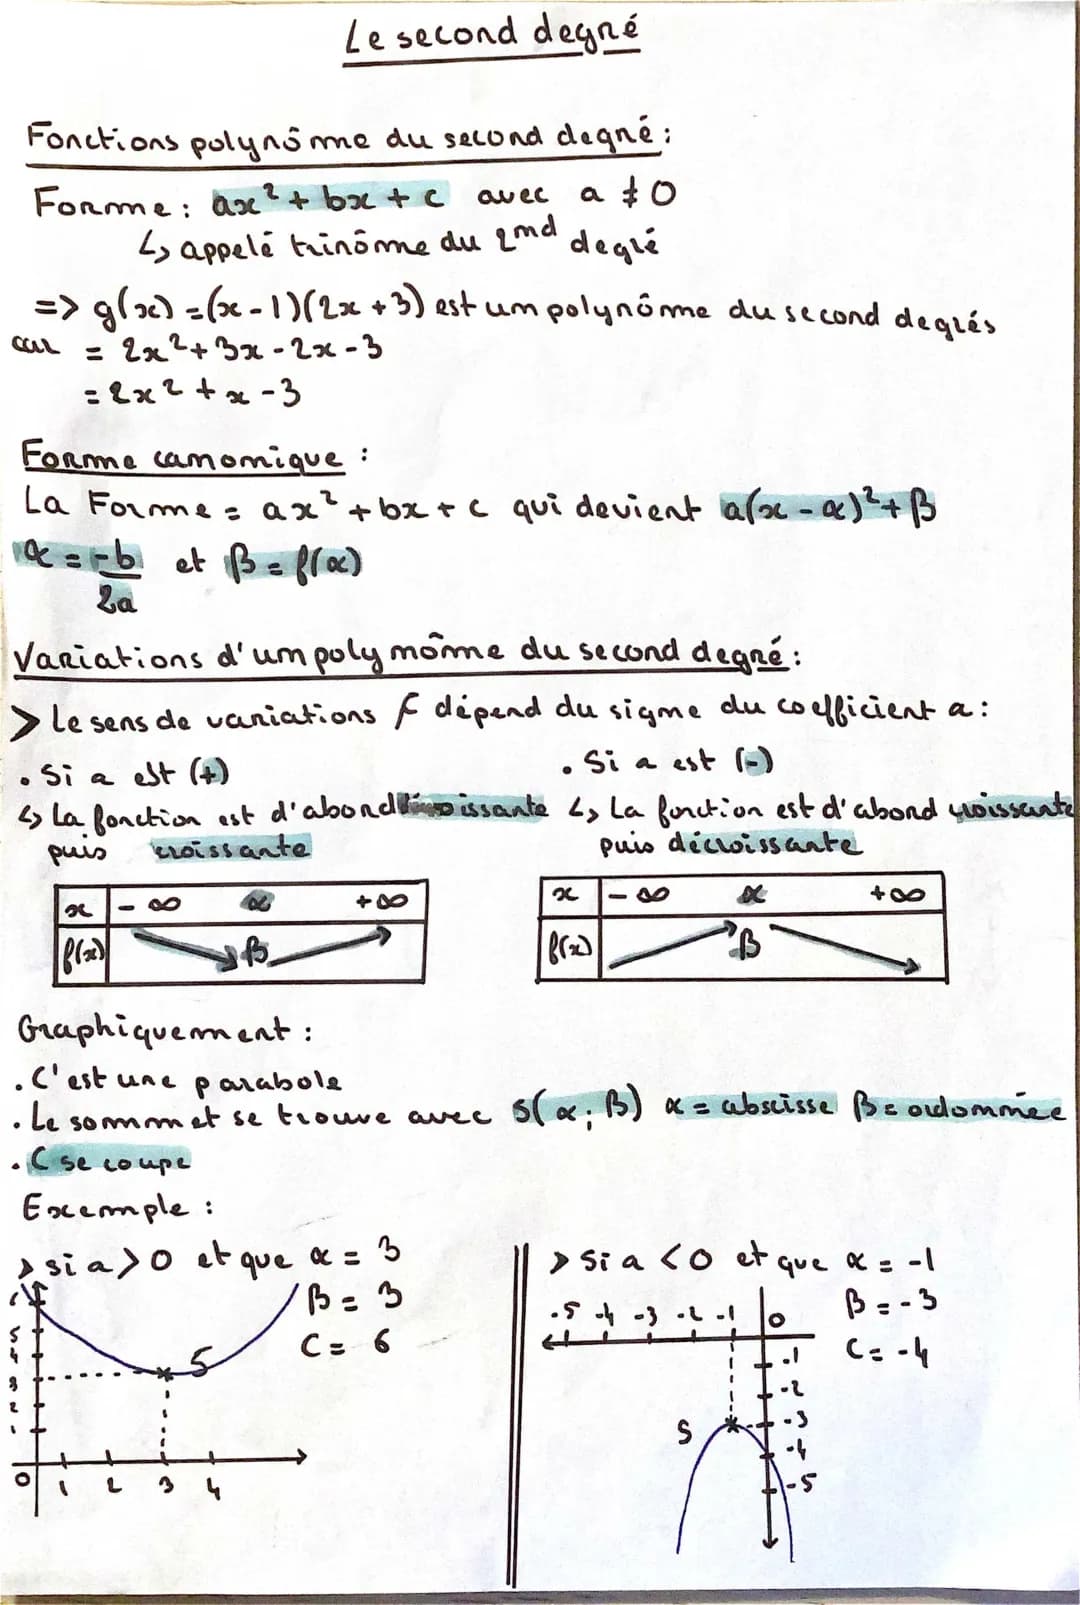 Le second degré
Fonctions polynôme du second degré :
Forme : ax² + bx + c avec a ≠ 0
↳ appelé trinôme du 2nd degré
=> g(x) = (x - 1)(2x + 3) est un polynôme du second degrés
car = 2x² + 3x - 2x - 3
= 2x² + x - 3
Forme canonique :
La Forme = ax² + bx + c qui devient a(x - α)² + β
α = -b/2a et β = f(α)
Variations d'un polynôme du second degré :
> Le sens de variations f dépend du signe du coefficient a :
• Si a est (+)
↳ La fonction est d'abord décroissante
puis croissante
x -∞ α +∞
f(x) β
• Si a est (-)
↳ La fonction est d'abord croissante
puis décroissante
x -∞ α +∞
f(x) β
Graphiquement :
• C'est une parabole
• Le sommet se trouve avec S(α ; β) α = abscisse β = ordonnée
• C se coupe
Exemple :
> si a > 0 et que α = 3
β = 3
C = 6
5
4
3
2
1
S
0 1 2 3 4
> Si a < 0 et que α = -1
β = -3
C = -4
-5 -4 -3 -2 -1 0
-1
-2
-3
-4
-5
S